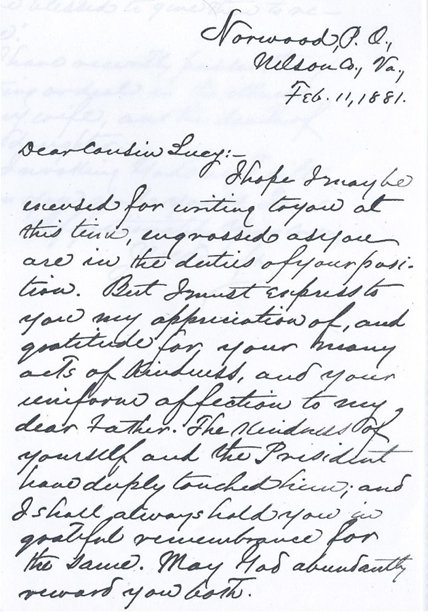 Norwood, P. O.,
Nelson Co., Va.,
Feb. 11, 1881.
Dear Cousin Lucy:-
I hope I may be
excused for writing to you at
this time, engrossed as you
are in the duties of your posi-
tion. But I must express to
you my appreciation of, and
gratitude for your many
acts of Kindness, and your
uniform affection to my
dear Father. The Kindness of
yourself and the President
have deeply touched him; and
I shall always hold you in
grateful remembrance for
the same. May God abundantly
reward you both.